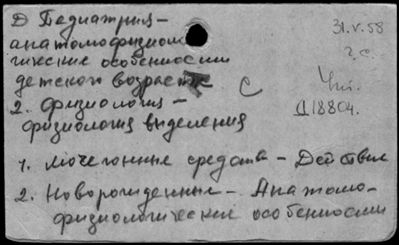 Д Педиатрия –
анатомофизиоло
гические особенности
детского возраста
2. Физиология –
физиология выделения
1. Мочегонные средства – Действие
2. Новорожденные – Анатомо-
физиологические особенности
31.V.58
г. С.
С
Д18804.